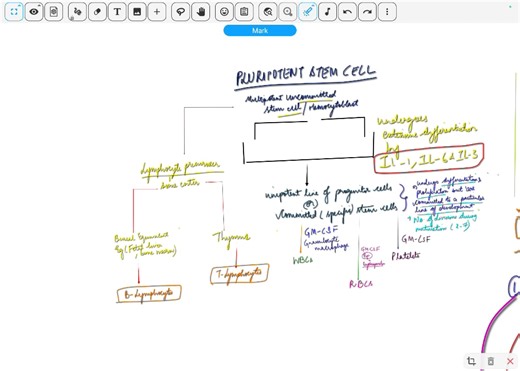 Mark
PLURIPOTENT STEM CELL
Multipotent uncommitted
stem cell / Hemocytoblast
undergoes
Extensive differentiation
by
IL-1, IL-6 & IL-3
Lymphocyte precursor
bone center
unipotent line of progenitor cells
(or)
Committed (specific) stem cells
undergo differentiation
Committed to a particular
line of development
No of divisions during
maturation
GM-CSF
Granulocytic
macrophage
WBCs
GM-CSF
RBCs
GM-CSF
Platelets
Bursal equivalent
Eg (Fetal liver,
bone marrow)
Thymus
B-Lymphocyte
T-Lymphocyte